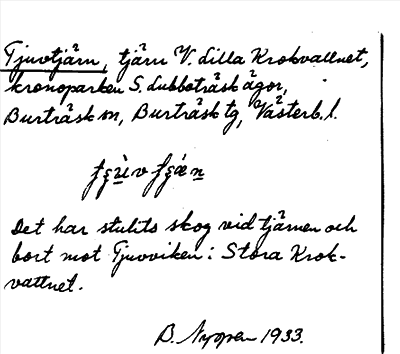 Tjuvtjärn, tjärn V. Lilla Krokvattnet,
kronoparken S. Lubboträsk ägor,
Burträsk sn, Burträsk tg, Västerb. l.
Det har stulits skog vid tjärnen och
bort mot Tjuvviken i Stora Krok-
vattnet.
B. Nyppen 1933.